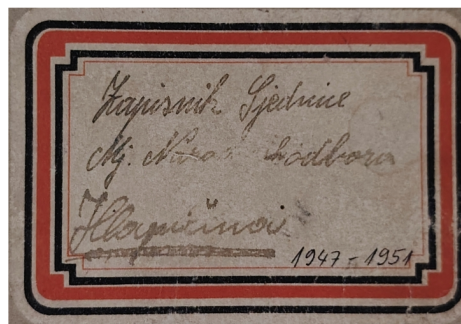 Zapisnik Sjednice
Mj. Narod
Hlapičina
1947-1951